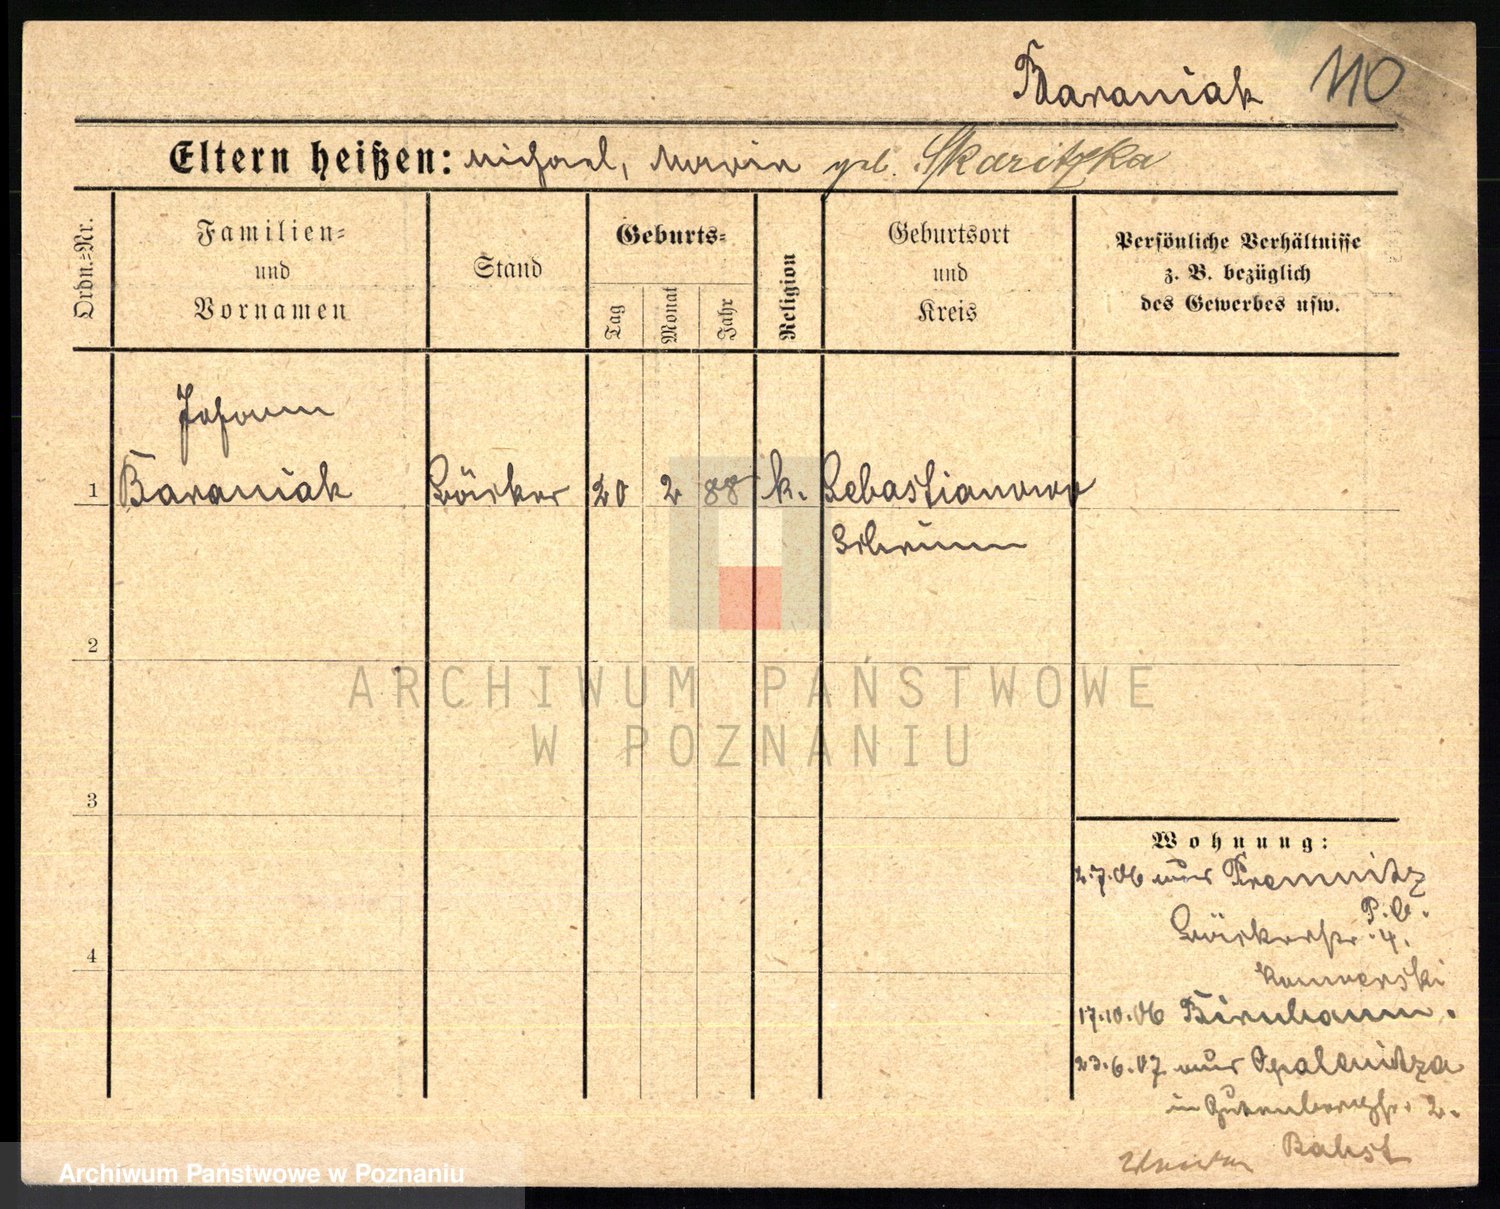 Baraniak 110
Eltern heißen: Michael, Maria geb. Skaritzka
Ordn.-Nr.
Familien-
und
Vornamen
Stand
Geburts-
Tag
Monat
Jahr
Religion
Geburtsort
und
Kreis
Persönliche Verhältnisse
z. B. bezüglich
des Gewerbes usw.
Johann
1 Baraniak Bäcker 20 2 88 k. Sebastianowo
Schrimm
2
3
4
Wohnung:
2.7.06 aus Premnitz
P.b.
Bäckerstr. 4.
17.10.06 Birnbaum.
23.6.07 aus Opalenitza
in Gutenbergstr. 2.
Babst
ARCHIWUM PAŃSTWOWE
W POZNANIU
Archiwum Państwowe w Poznaniu